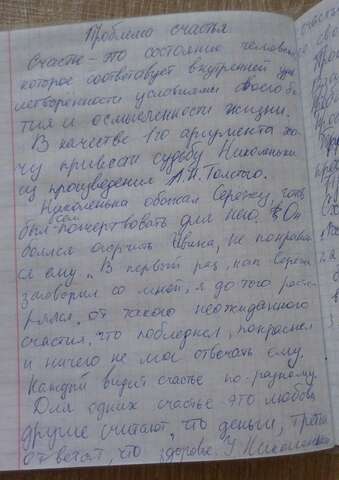 Проблема счастья
Счастье - это состояние человека
которое соответствует внутренней удв
летворённости условиями своего бы
тия и осмысленности жизни.
В качестве 1го аргумента хо-
чу привести судьбу Николеньки
из произведения Л.Н. Толстого.
Николенька обожал Сережу, готов
был всем пожертвовать для него. Он
боялся огорчить Ивина, не понравит
ся ему. В первый раз, как Сережа
заговорил со мной, я до того расте-
рялся от такого неожиданного
счастья, что побледнел, покраснел
и ничего не мог отвечать ему.
Каждый видит счастье по-разному
Для одних счастье - это любовь
другие считают, что деньги, третьи
ответят, что здоровье. У Николеньки